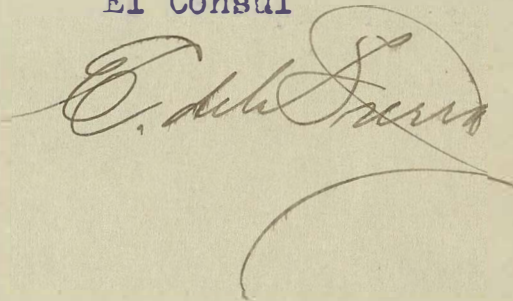 El Consul
E. de la Sierra